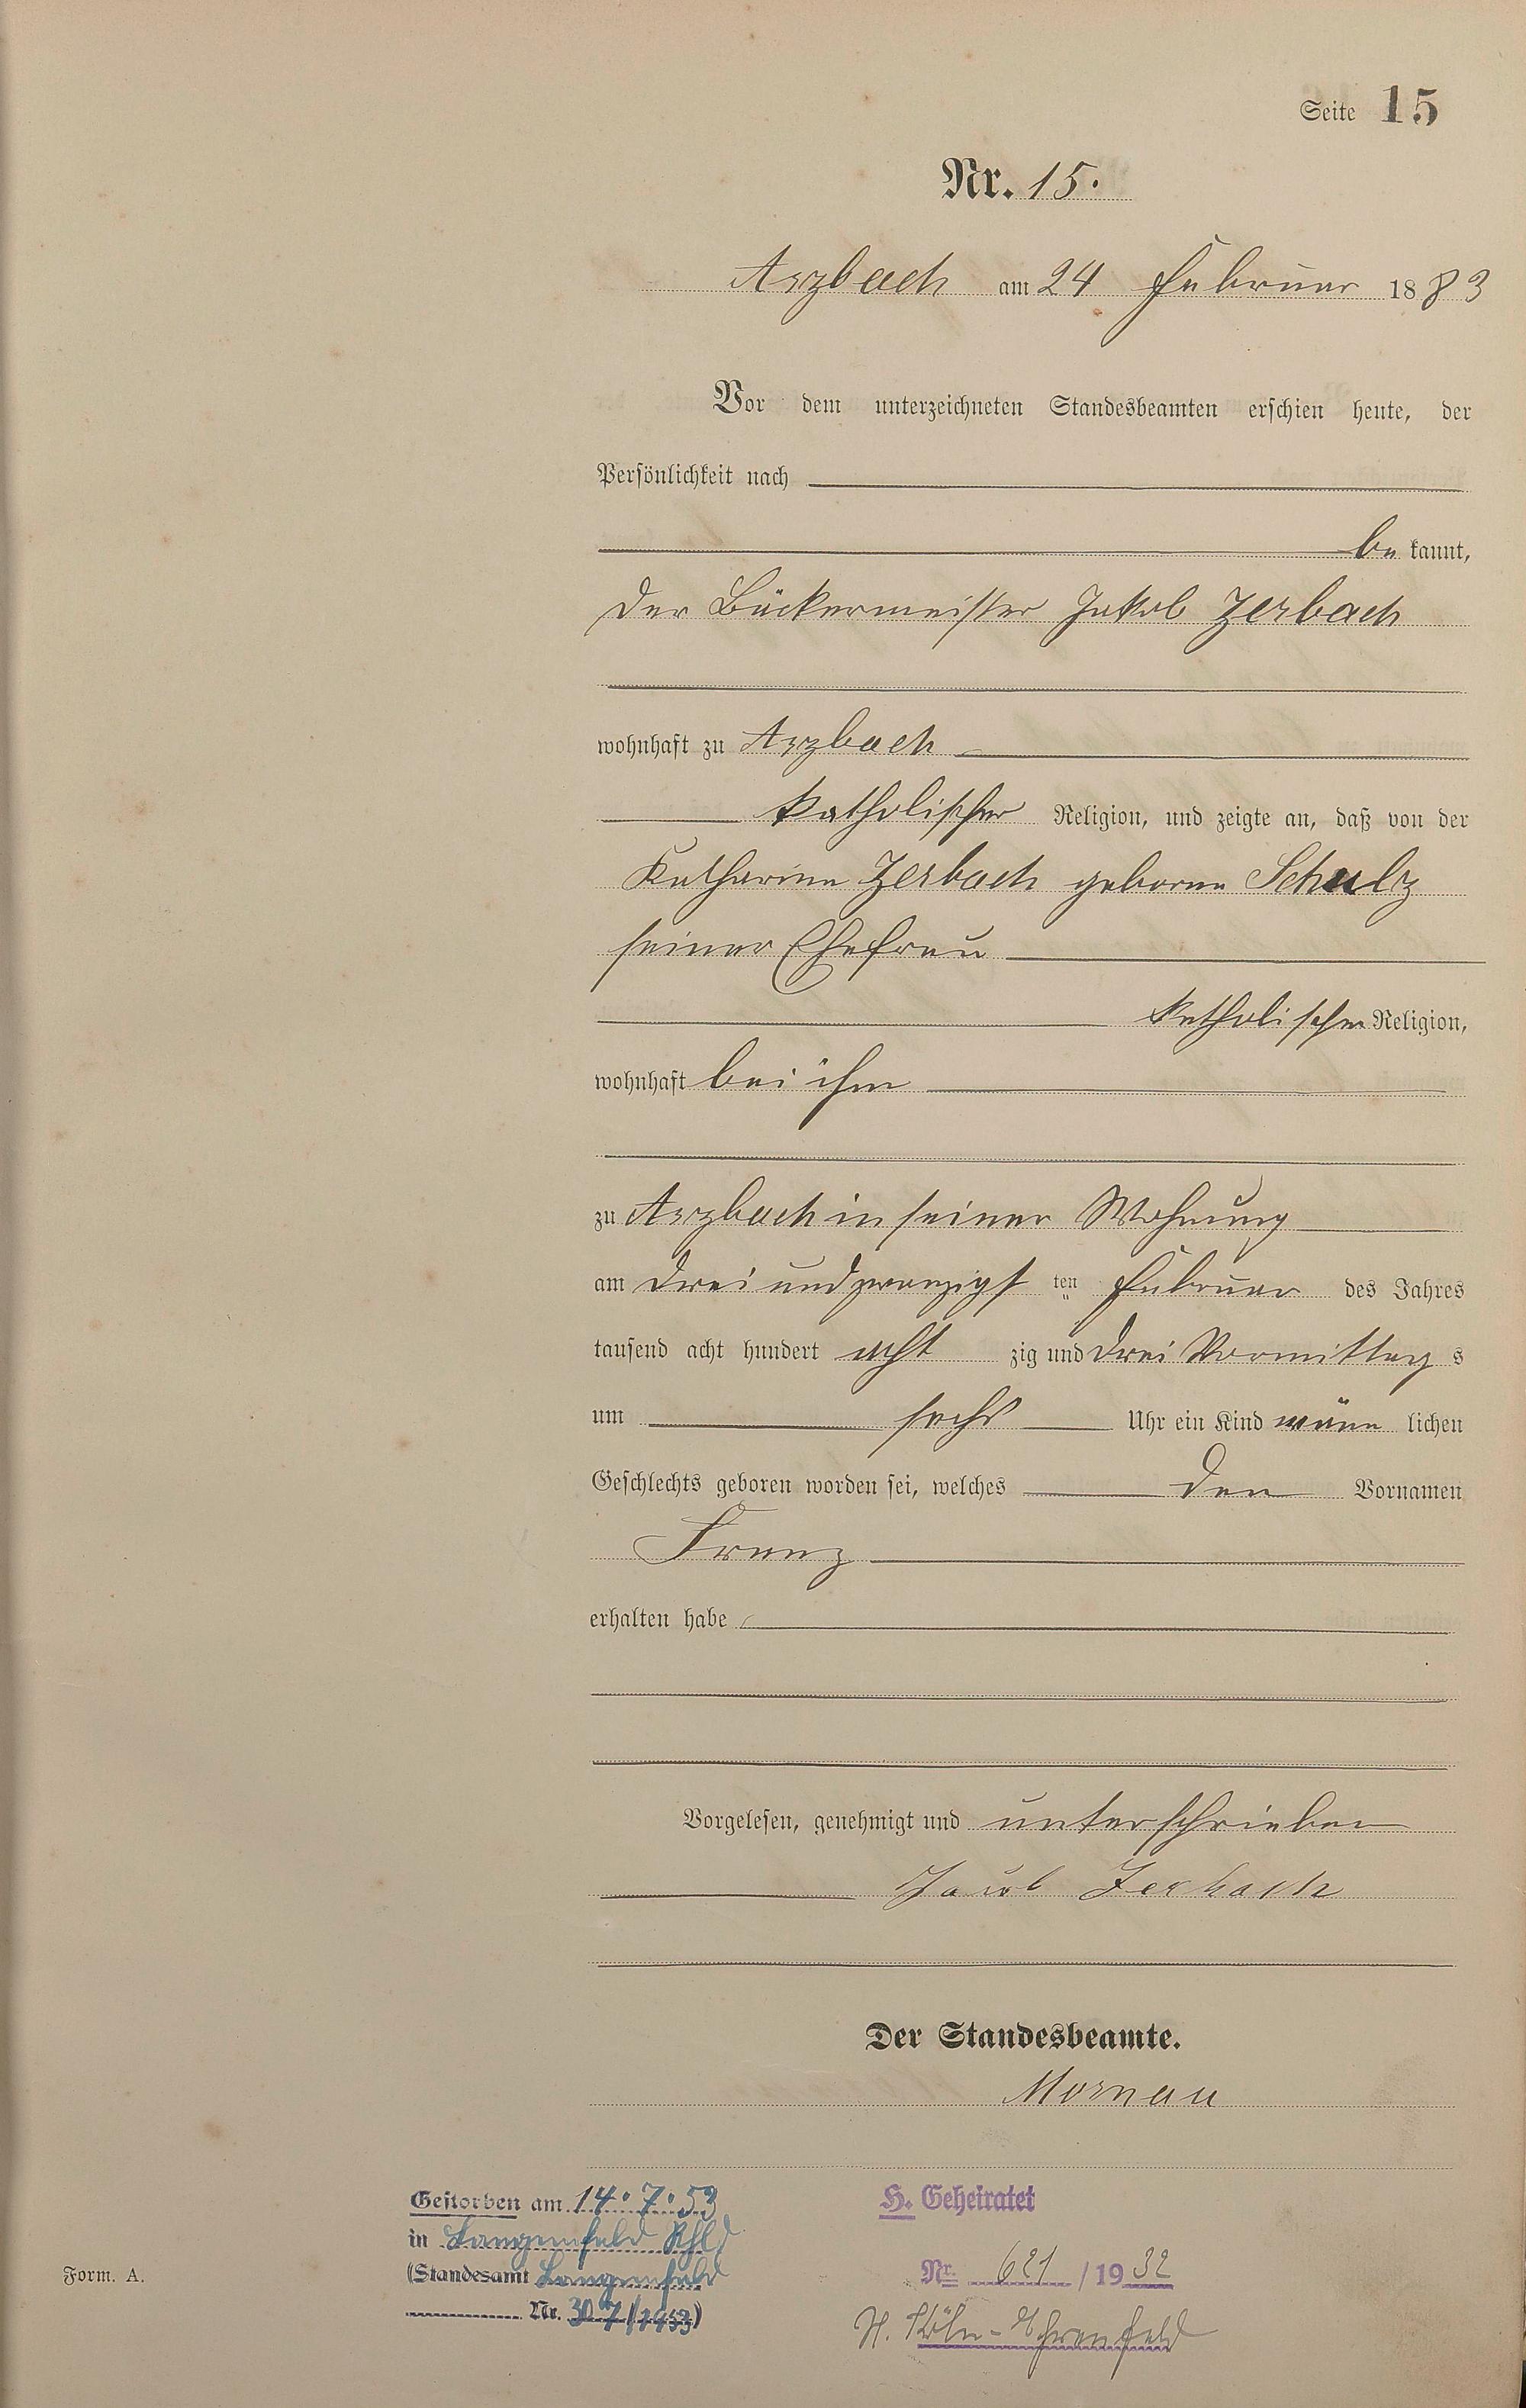 Seite 15
Nr. 15.
Arzbach am 24 Februar 1883
Vor dem unterzeichneten Standesbeamten erschien heute, der
Persönlichkeit nach
be kannt,
der Bäckermeister Jakob Zerbach
wohnhaft zu Arzbach
katholischer Religion, und zeigte an, daß von der
Katharina Zerbach geborne Schulz
seiner Ehefrau
katholischer Religion,
wohnhaft bei ihm
zu Arzbach in seiner Wohnung
am drei und zwanzigst ten Februar des Jahres
tausend acht hundert acht zig und drei Vormittag s
um sechs Uhr ein Kind männ lichen
Geschlechts geboren worden sei, welches den Vornamen
Franz
erhalten habe
Vorgelesen, genehmigt und unterschrieben
Jacob Zerbach
Der Standesbeamte.
Mornau
Gestorben am 14.7.53
in Langenfeld Rhld
(Standesamt Langenfeld
Nr. 307/1953)
H. Geheiratet
Nr. 621 / 1932
St. Köln-Ehrenfeld
Form. A.